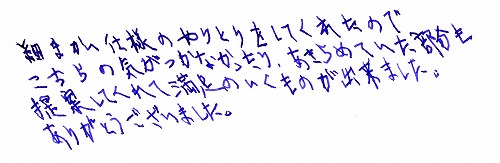 細まかい仕様のやりとりをしてくれたので
こちらの気がつかなかったり、あきらめていた部分も
提案してくれて満足のいくものが出来ました。
ありがとうございました。